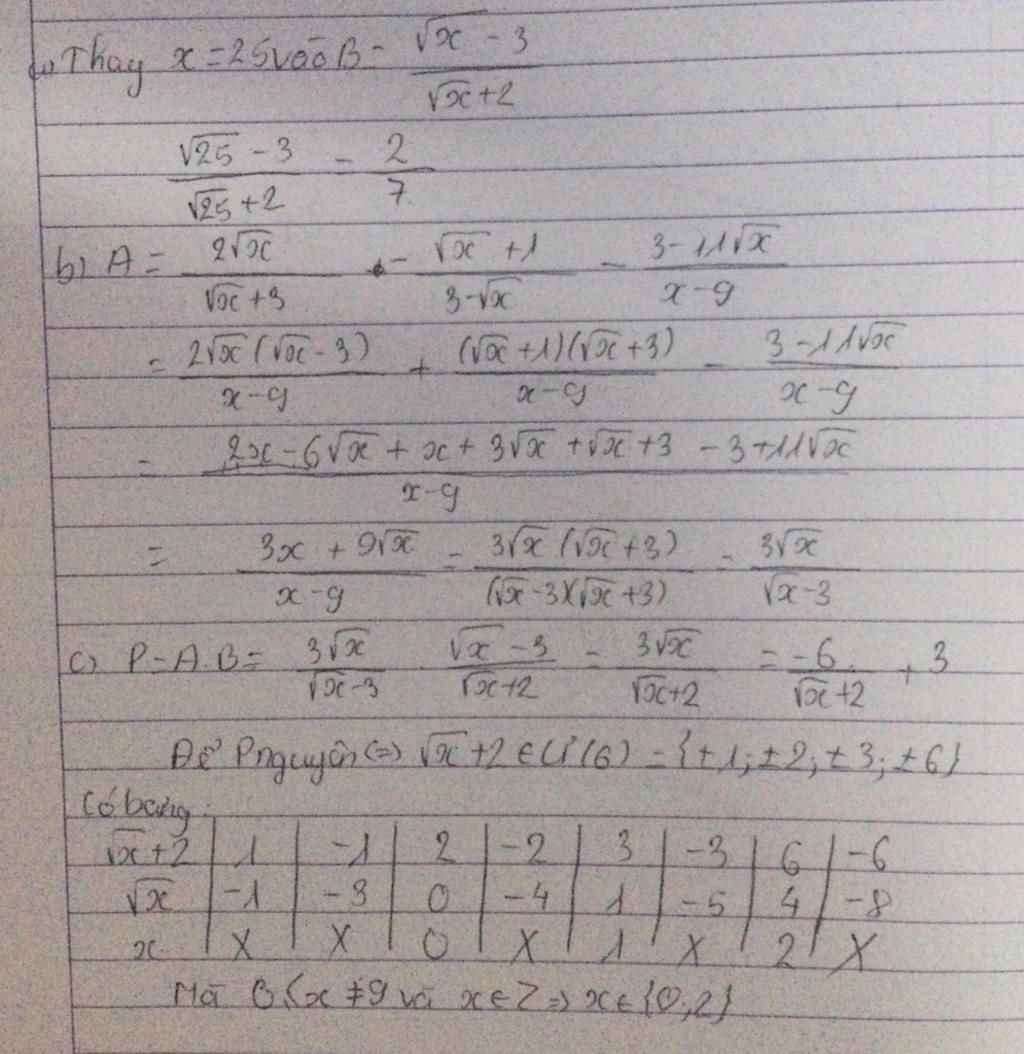 a) Thay x = 25 vào B = (√x - 3)/(√x + 2)
(√25 - 3)/(√25 + 2) = 2/7
b) A = 2√x/(√x + 3) - (√x + 1)/(3 - √x) - (3 - 11√x)/(x - 9)
= 2√x(√x - 3)/(x - 9) + (√x + 1)(√x + 3)/(x - 9) - (3 - 11√x)/(x - 9)
= (2x - 6√x + x + 3√x + √x + 3 - 3 + 11√x)/(x - 9)
= (3x + 9√x)/(x - 9) = 3√x(√x + 3)/((√x - 3)(√x + 3)) = 3√x/(√x - 3)
c) P = A.B = 3√x/(√x - 3) . (√x - 3)/(√x + 2) = 3√x/(√x + 2) = -6/(√x + 2) + 3
Để P nguyên <=> √x + 2 ∈ Ư(6) = {±1; ±2; ±3; ±6}
Có bảng:
√x + 2 | 1 | -1 | 2 | -2 | 3 | -3 | 6 | -6
√x | -1 | -3 | 0 | -4 | 1 | -5 | 4 | -8
x | X | X | 0 | X | 1 | X | 2 | X
Mà 0 ≤ x ≠ 9 và x ∈ Z => x ∈ {0; 2}